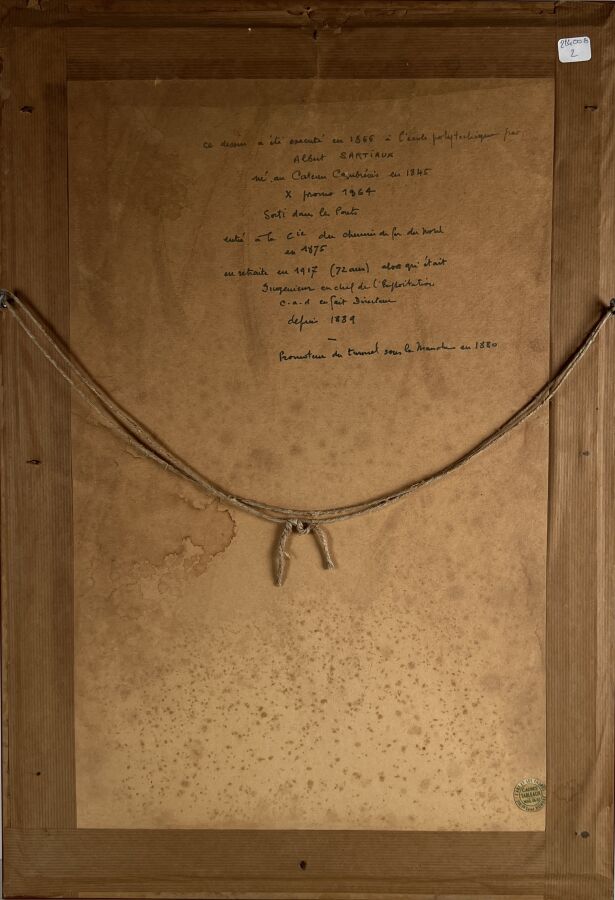 ce dessin a été executé en 1866 à l'école polytechnique par
Albert SARTIAUX
né au Cateau Cambrésis en 1845
X promo 1864
Sorti dans les Ponts
entré à la Cie du chemin de fer du Nord
en 1875
en retraite en 1917 (72 ans) alors qu'était
Ingenieur en chef de l'Exploitation
c.a.d en fait Directeur
depuis 1889
—
Promoteur du tunnel sous la Manche en 1880
2
CADRES
TABLEAUX